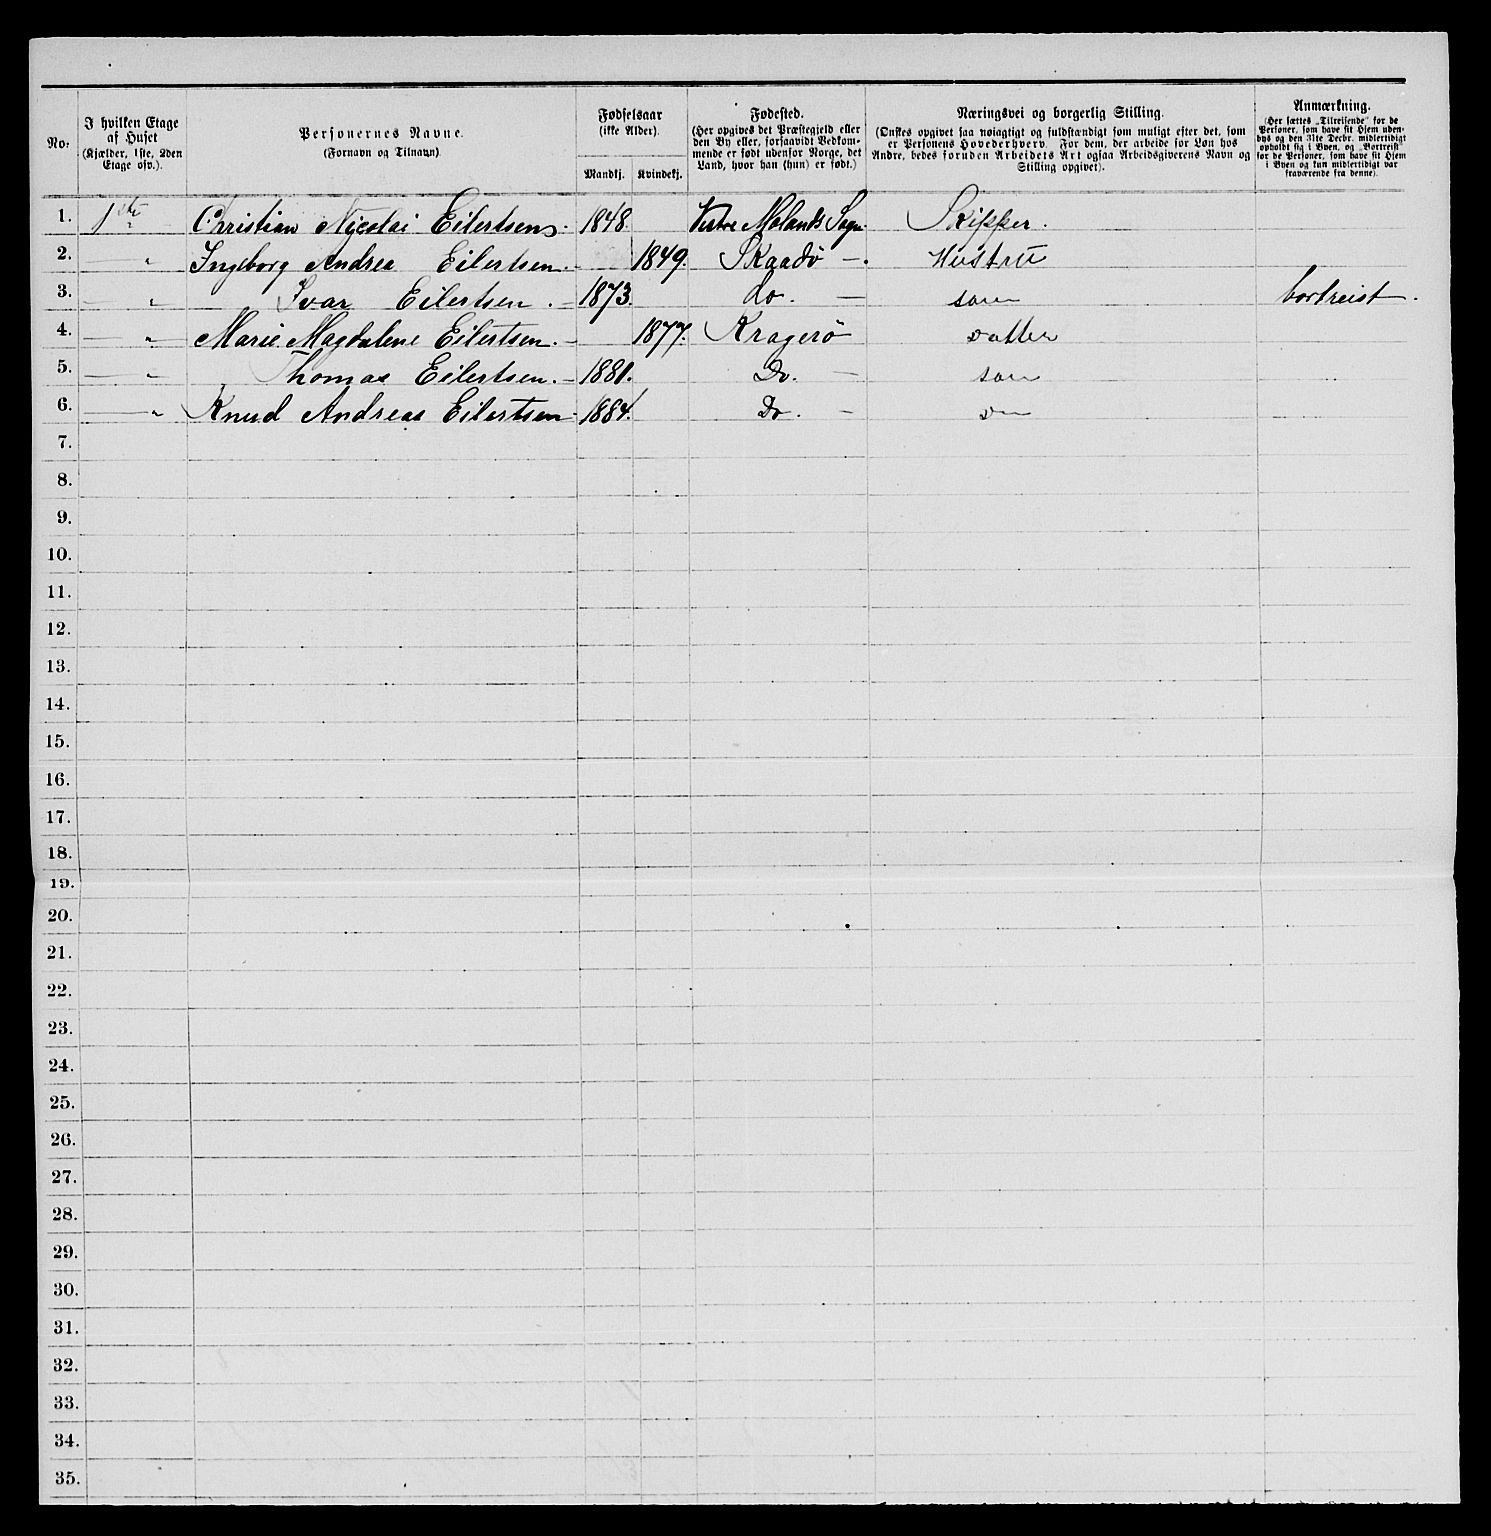 No:
I hvilken Etage af Huset (Kjælder, 1ste, 2den Etage osv.).
Personernes Navne. (Fornavn og Tilnavn).
Fødselsaar (ikke Alder).
Mandkj. Kvindekj.
Fødested. (Her opgives det Præstegjeld eller den By eller, forsaavidt Vedkommende er født udenfor Norge, det Land, hvor han (hun) er født.)
Næringsvei og borgerlig Stilling. (Ønskes opgivet saa nøiagtigt og fuldstændigt som muligt efter det, som er Personens Hovederhverv. For dem, der arbeide for Løn hos Andre, bedes foruden Arbeidets Art ogsaa Arbeidsgiverens Navn og Stilling opgivet).
Anmærkning. (Her sættes „Tilreisende" for de Personer, som have sit Hjem udenbys og den 31te Decbr. midlertidigt opholdt sig i Byen, og „Bortreist" for de Personer, som have sit Hjem i Byen og kun midlertidigt var fraværende fra denne).
1. 1ste Christian Nicolai Eilertsen. 1848. Vestre Molands Sogn Skipper.
2. — " Ingeborg Andrea Eilertsen. — 1849. Skaadø —. Hustru
3. — " Ivar Eilertsen. — 1873. do. — søn bortreist.
4. — " Marie Magdalene Eilertsen. — 1877. Kragerø datter
5. — " Thomas Eilertsen. — 1881. Do. — søn
6. — " Knud Andreas Eilertsen 1884. Do. — do
7.
8.
9.
10.
11.
12.
13.
14.
15.
16.
17.
18.
19.
20.
21.
22.
23.
24.
25.
26.
27.
28.
29.
30.
31.
32.
33.
34.
35.